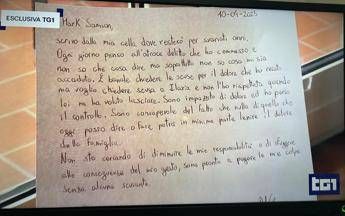 ESCLUSIVA TG1
10-04-2025
Mark Samson,
scrivo dalla mia cella dove resterò per svariati anni.
Ogni giorno penso all'atroce delitto che ho commesso e
non so che cosa dire ma soprattutto non so cosa mi sia
accaduto. È banale chiedere le scuse per il dolore che ho creato
ma voglio chiedere scusa a Ilaria e non l'ho rispettata quando
lei mi ha voluto lasciare. Sono impazzito di dolore ed ho perso
il controllo. Sono consapevole del fatto che nulla di quello che
oggi posso dire o fare potrà in minima parte lenire il dolore
della famiglia.
Non sto cercando di diminuire le mie responsabilità o di sfuggire
alle conseguenze del mio gesto, sono pronto a pagare le mie colpe
senza alcuna scusante.
TG1